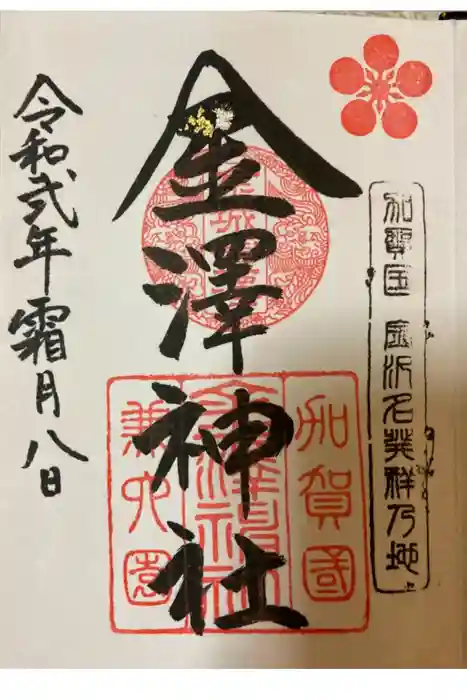 加賀国 金沢名発祥乃地
金澤神社
加賀國
金澤神社
兼六園
令和弐年霜月八日